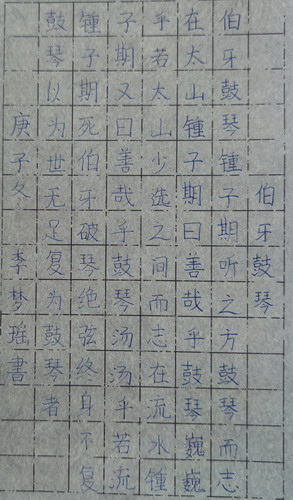 伯牙鼓琴
伯牙鼓琴锺子期听之方鼓琴而志
在太山锺子期曰善哉乎鼓琴巍巍
乎若太山少选之间而志在流水锺
子期又曰善哉乎鼓琴汤汤乎若流
锺子期死伯牙破琴绝弦终身不复
鼓琴以为世无足复为鼓琴者
庚子冬 李梦瑶書